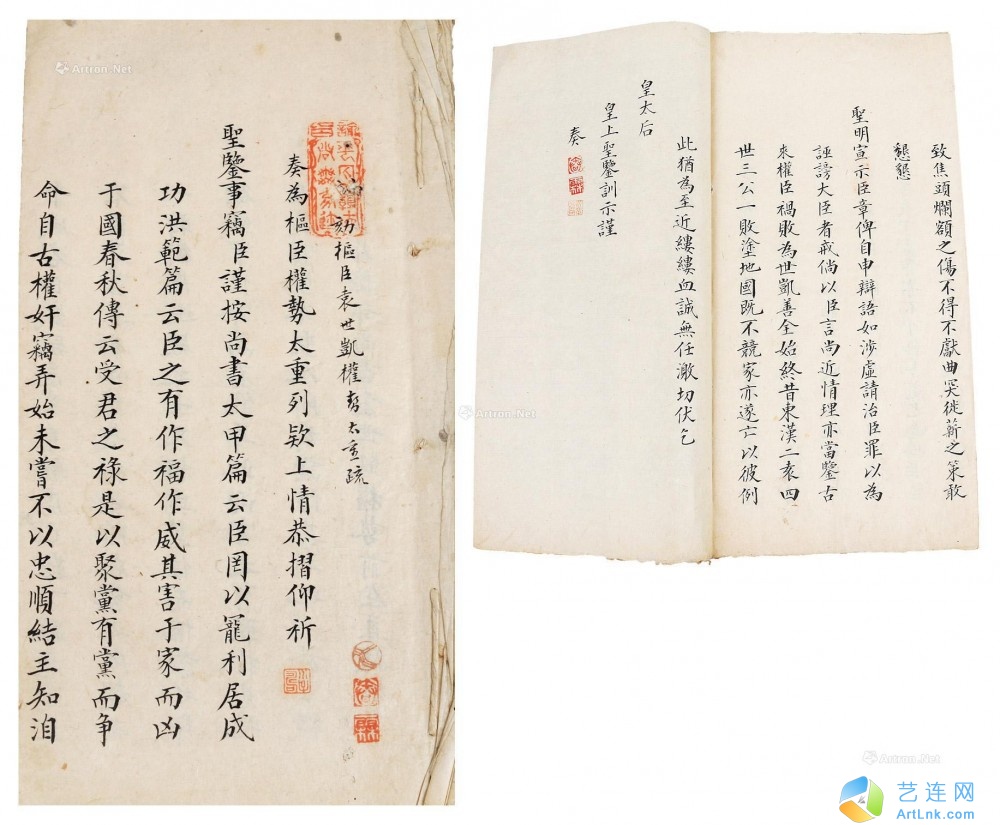 劾樞臣袁世凱權势太重疏
奏為樞臣權勢太重列欵上情恭摺仰祈
聖鑒事竊臣謹按尚書太甲篇云臣罔以寵利居成
功洪範篇云臣之有作福作威其害于家而凶
于國春秋傳云受君之祿是以聚黨有黨而争
命自古權奸竊弄始未嘗不以忠順結主知洎
致焦頭爛額之傷不得不獻曲突徙薪之策敢
懇懇
聖明宣示臣章俾自申辯語如涉虛請治臣罪以為
誣謗大臣者戒倘以臣言尚近情理亦當鑒古
來權臣禍敗為世凱善全始終昔東漢二袁四
世三公一敗塗地國既不競家亦遂亡以彼例
此猶為至近縷縷血誠無任激切伏乞
皇太后
皇上聖鑒訓示謹
奏
Artron.Net
Artron.Net
Artron.Net
艺连网
ArtLnk.com